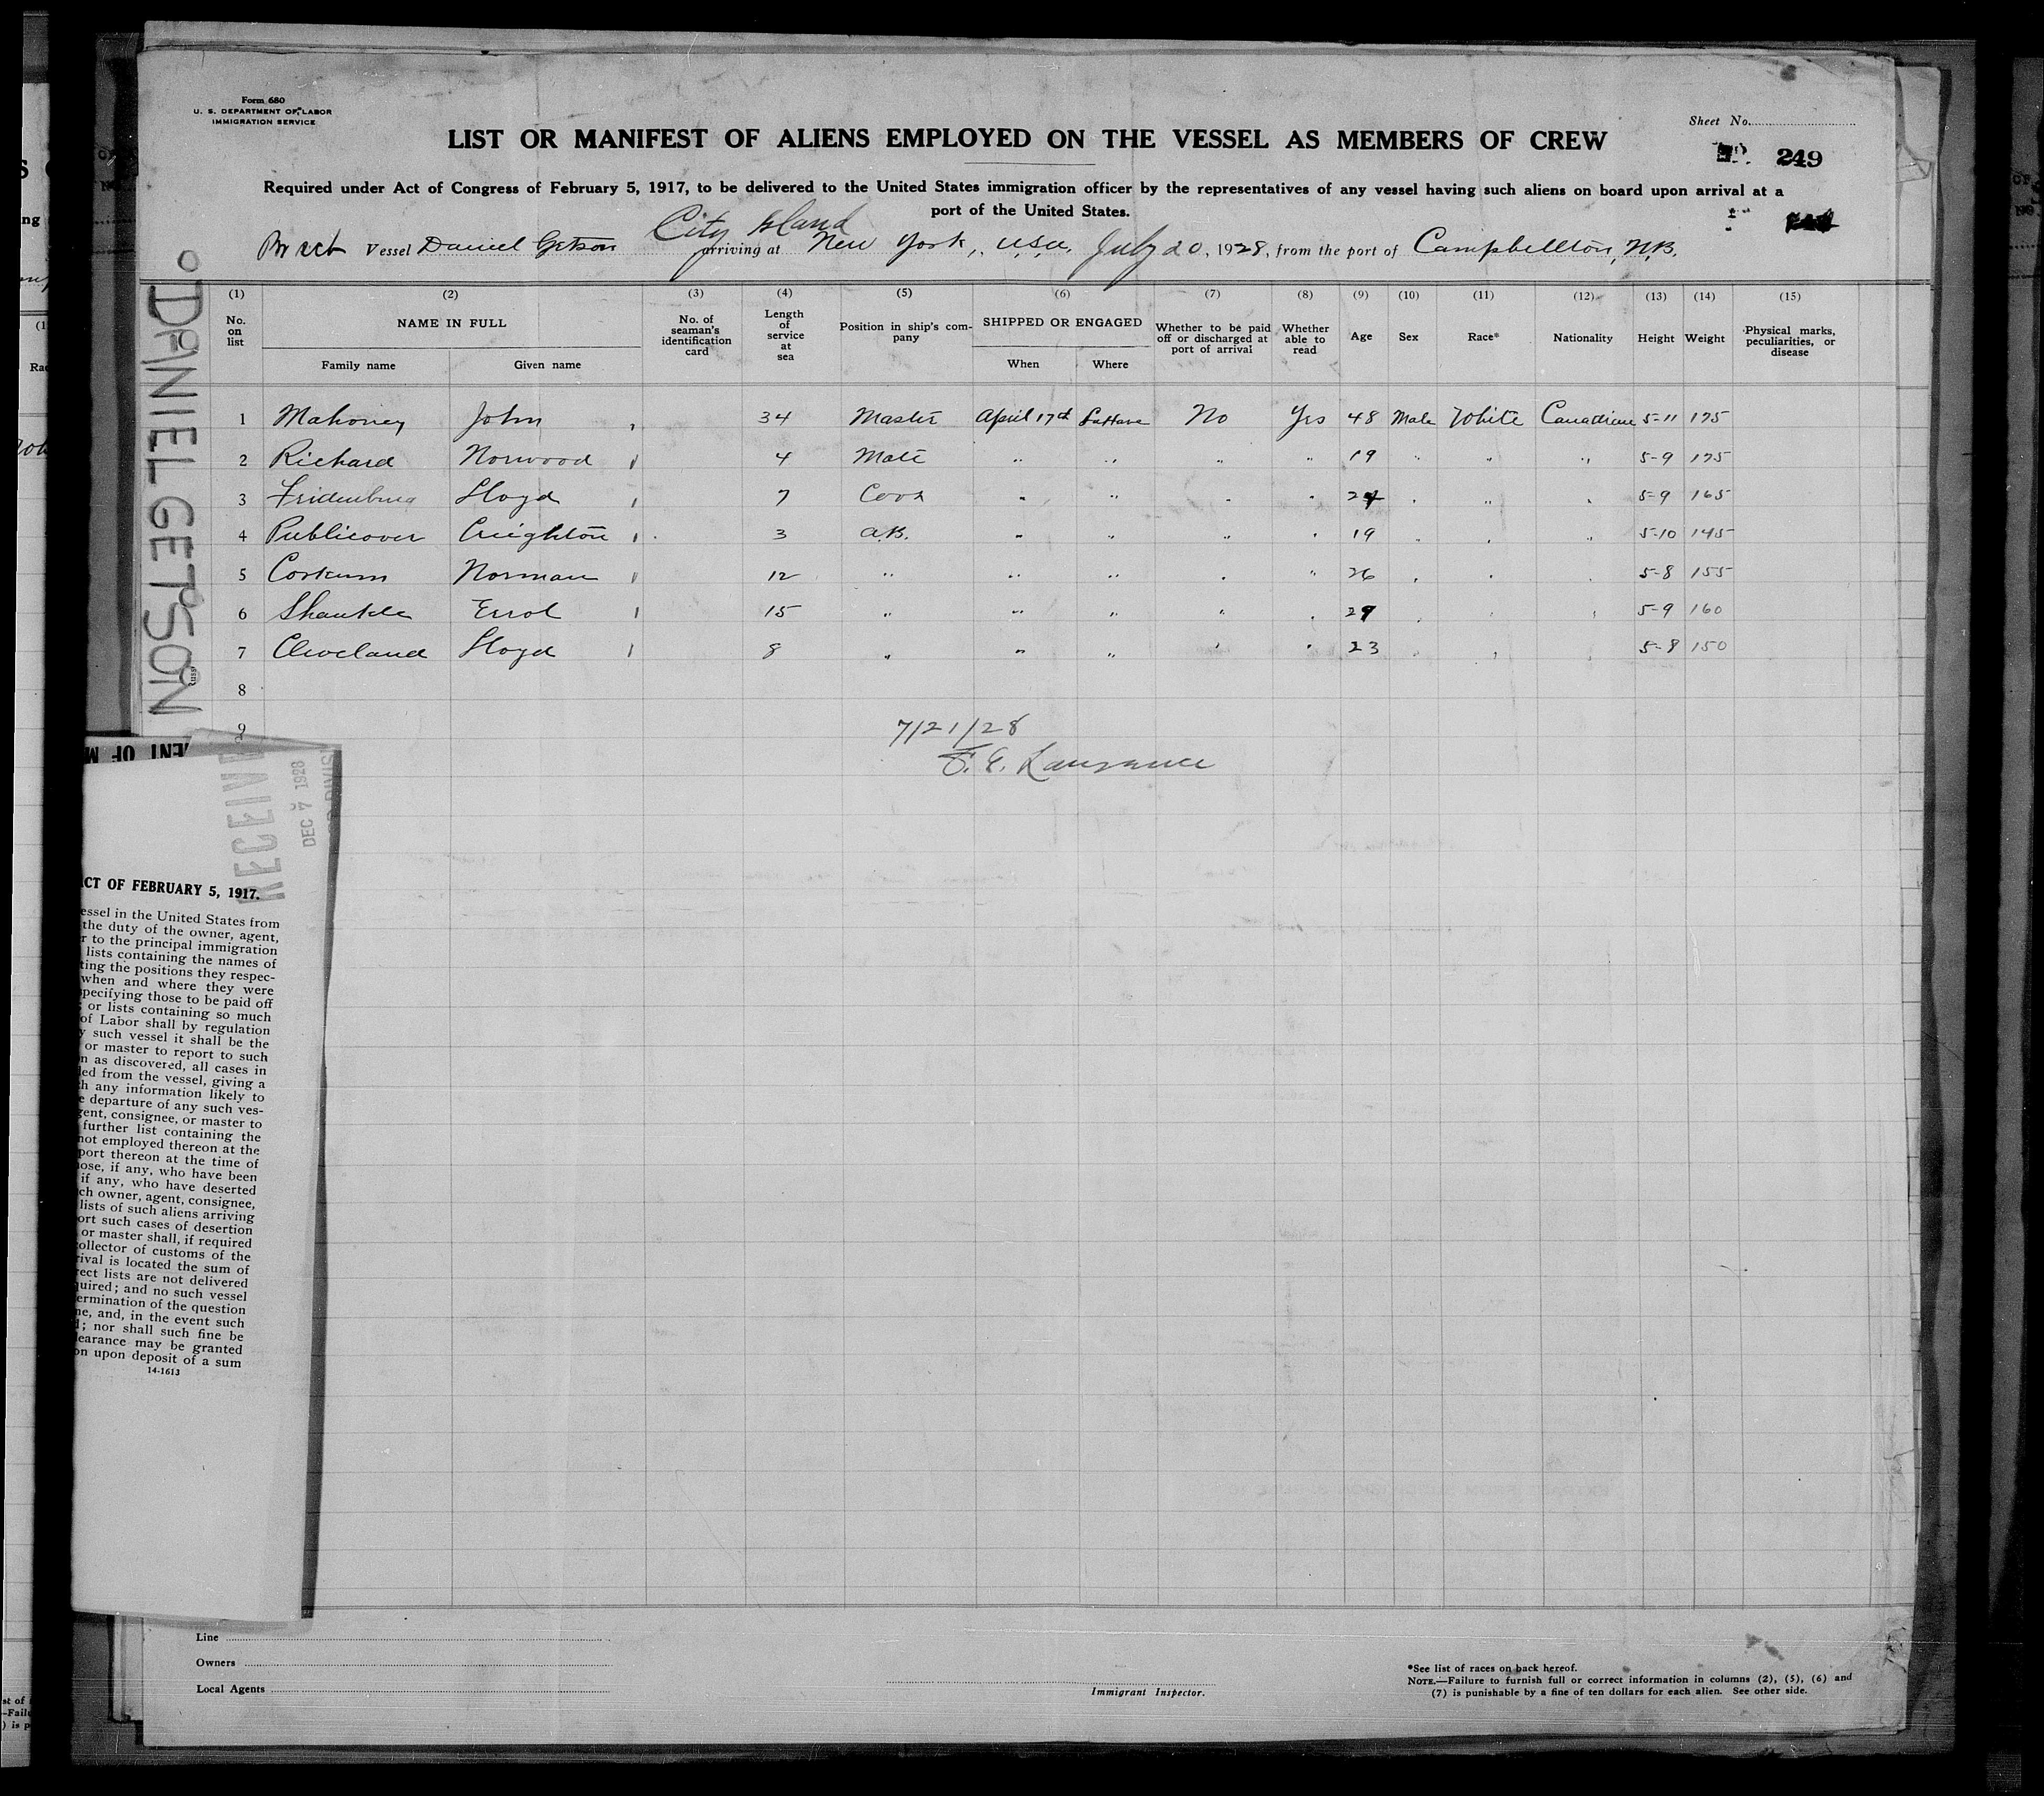 Form 680
U. S. DEPARTMENT OF LABOR
IMMIGRATION SERVICE
Sheet No.
LIST OR MANIFEST OF ALIENS EMPLOYED ON THE VESSEL AS MEMBERS OF CREW
249
Required under Act of Congress of February 5, 1917, to be delivered to the United States immigration officer by the representatives of any vessel having such aliens on board upon arrival at a
port of the United States.
City Island
Br sch Vessel Daniel Getson arriving at New York, U.S.A. July 20, 1928, from the port of Campbellton, N.B.
DANIEL GETSON
(1) (2) (3) (4) (5) (6) (7) (8) (9) (10) (11) (12) (13) (14) (15)
No. on list NAME IN FULL Family name Given name No. of seaman's identification card Length of service at sea Position in ship's company SHIPPED OR ENGAGED When Where Whether to be paid off or discharged at port of arrival Whether able to read Age Sex Race* Nationality Height Weight Physical marks, peculiarities, or disease
1 Mahoney John 34 Master April 17th LaHave No Yes 48 Male White Canadian 5-11 175
2 Richard Norwood 4 Mate " " " " 19 " " " 5-9 175
3 Lloyd 7 Cook " " " " " " " 5-9 165
4 Publicover Creighton 3 A.B. " " " " 19 " " " 5-10 145
5 Corkum Norman 12 " " " " " 26 " " " 5-8 155
6 Shankle Errol 15 " " " " " 29 " " " 5-9 160
7 Cleveland Lloyd 8 " " " " " 23 " " " 5-8 150
8
9
7/21/28
RECEIVE
DEC 7 1928
ENT OF M
ACT OF FEBRUARY 5, 1917.
essel in the United States from
the duty of the owner, agent,
r to the principal immigration
lists containing the names of
ting the positions they respec-
when and where they were
pecifying those to be paid off
; or lists containing so much
of Labor shall by regulation
y such vessel it shall be the
or master to report to such
n as discovered, all cases in
led from the vessel, giving a
h any information likely to
e departure of any such ves-
gent, consignee, or master to
further list containing the
not employed thereon at the
port thereon at the time of
ose, if any, who have been
if any, who have deserted
ch owner, agent, consignee,
lists of such aliens arriving
ort such cases of desertion
or master shall, if required
ollector of customs of the
rival is located the sum of
rect lists are not delivered
quired; and no such vessel
ermination of the question
ne, and, in the event such
d; nor shall such fine be
earance may be granted
on upon deposit of a sum
14-1613
Line
Owners
Local Agents
Immigrant Inspector.
*See list of races on back hereof.
NOTE.—Failure to furnish full or correct information in columns (2), (5), (6) and
(7) is punishable by a fine of ten dollars for each alien. See other side.